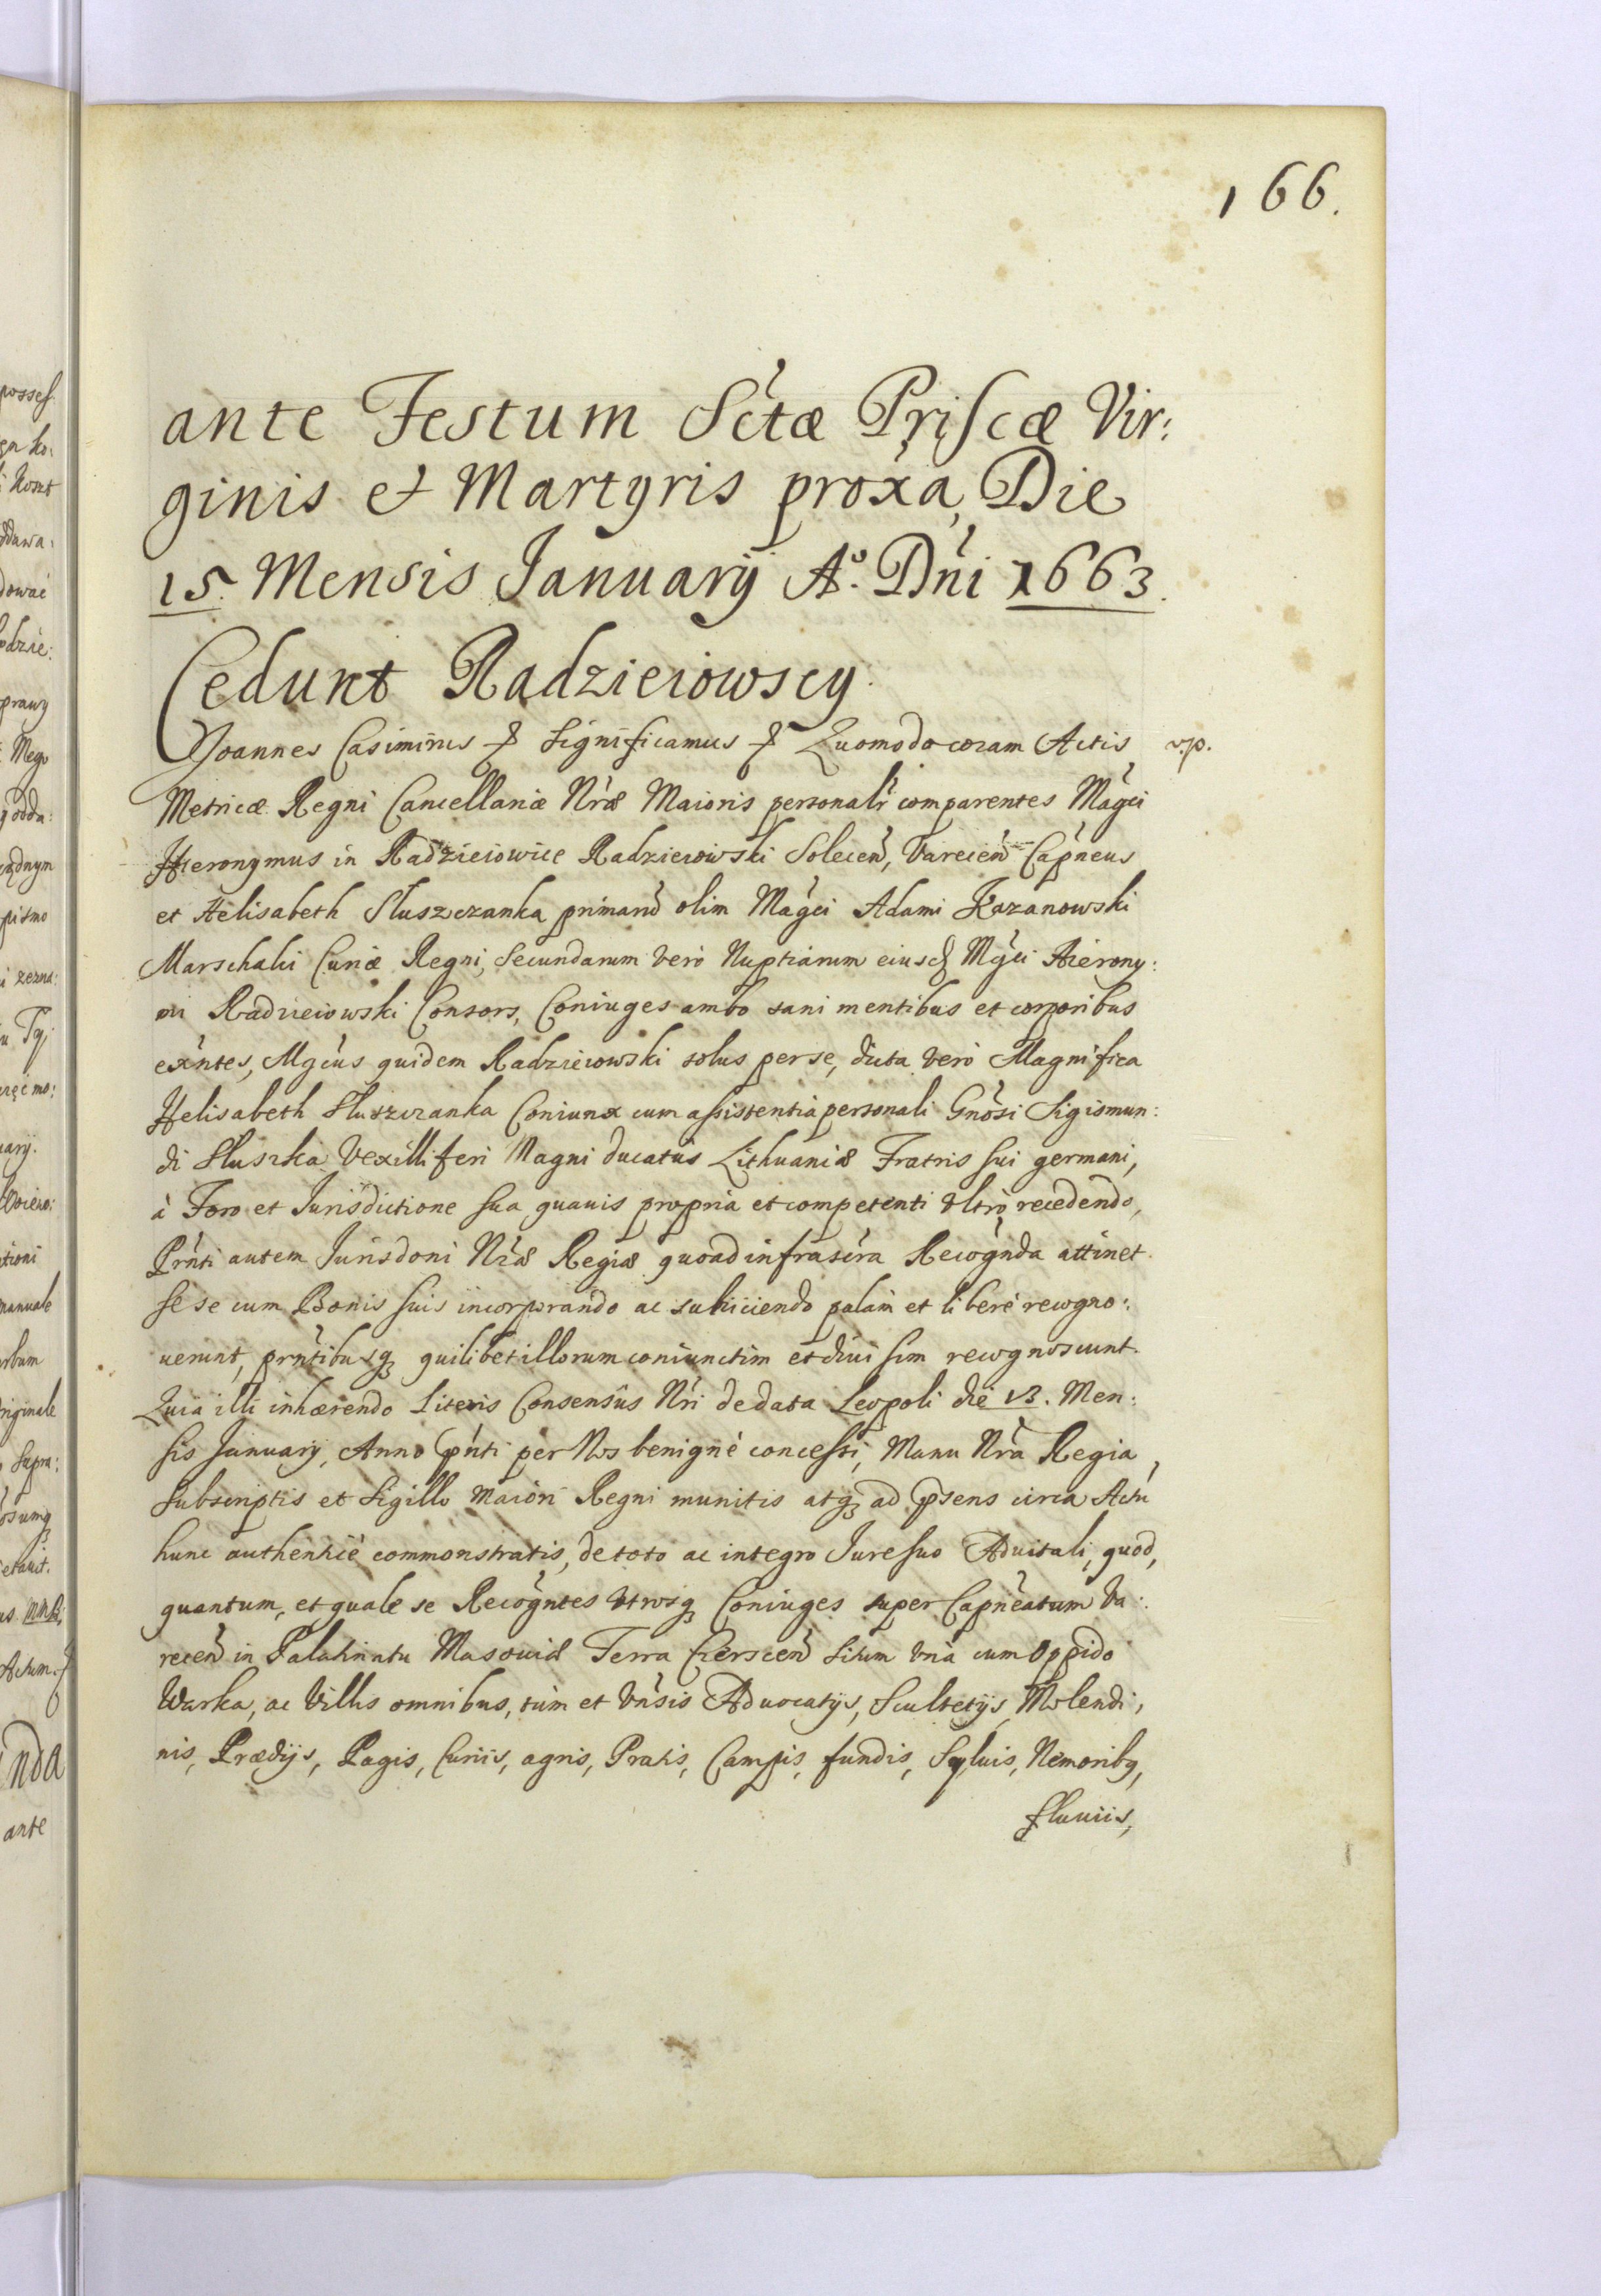 166.
ante Festum Sctæ Priscæ Vir:
ginis et Martyris proxa, Die
15. Mensis Januarij Aº. Dni 1663.
Cedunt Radzieiowscy.
Joannes Casimirus & Significamus & Quomodo coram Actis
Metricæ Regni Cancellariæ Nræ Maioris personalr comparentes Magci
Hieronymus in Radzieiowice Radzieiowski Solecen, Varecen Capneus
et Helisabeth Sluszczanka primarũ olim Magci Adami Kazanowski
Marschalci Curiæ Regni, Secundarum vero Nuptiarum eiusd Mgci Hierony:
mi Radzieiowski Consors, Coniuges ambo sani mentibus et corporibus
exntes, Mgcus quidem Radzieiowski solus per se, dicta vero Magnifica
Helisabeth Sluszczanka Coniunx cum assistentia personali Gnosi Sigismun:
di Sluszka Vexilliferi Magni ducatus Lithuaniæ Fratris sui germani,
à Foro et Jurisdictione sua quauis propria et competenti vltrò recedendo,
Prnti autem Jurisdoni Nræ Regiæ quoad infrascra Recognda attinet
se se cum Bonis suis incorporando ac subiiciendo palam et liberè recogno:
uerunt, prntibusq quilibet illorum coniunctim et diuisim recognoscunt.
Quia illi inhærendo Literis Consensûs Nri de data Leopoli die 13. Men:
sis Januarij, Anno pnti per Nos benignè concessi, Manu Nra Regia,
subscriptis et Sigillo maiori Regni munitis atq ad psens circa Actũ
hunc authenticè commonstratis, de toto ac integro Jure suo Aduitali, quod,
quantum, et quale se Recogntes vtrosq Coniuges super Capneatum Va:
recen in Palatinatu Masouiæ Terra Czerscen situm vnà cum Oppido
Warka, ac Villis omnibus, tùm et vnsis Aduocatijs, Scultetijs, Molendi:
nis, Prædijs, Pagis, Curiis, agris, Pratis, Campis, fundis, Syluis, Nemoribq,
fluuiis,